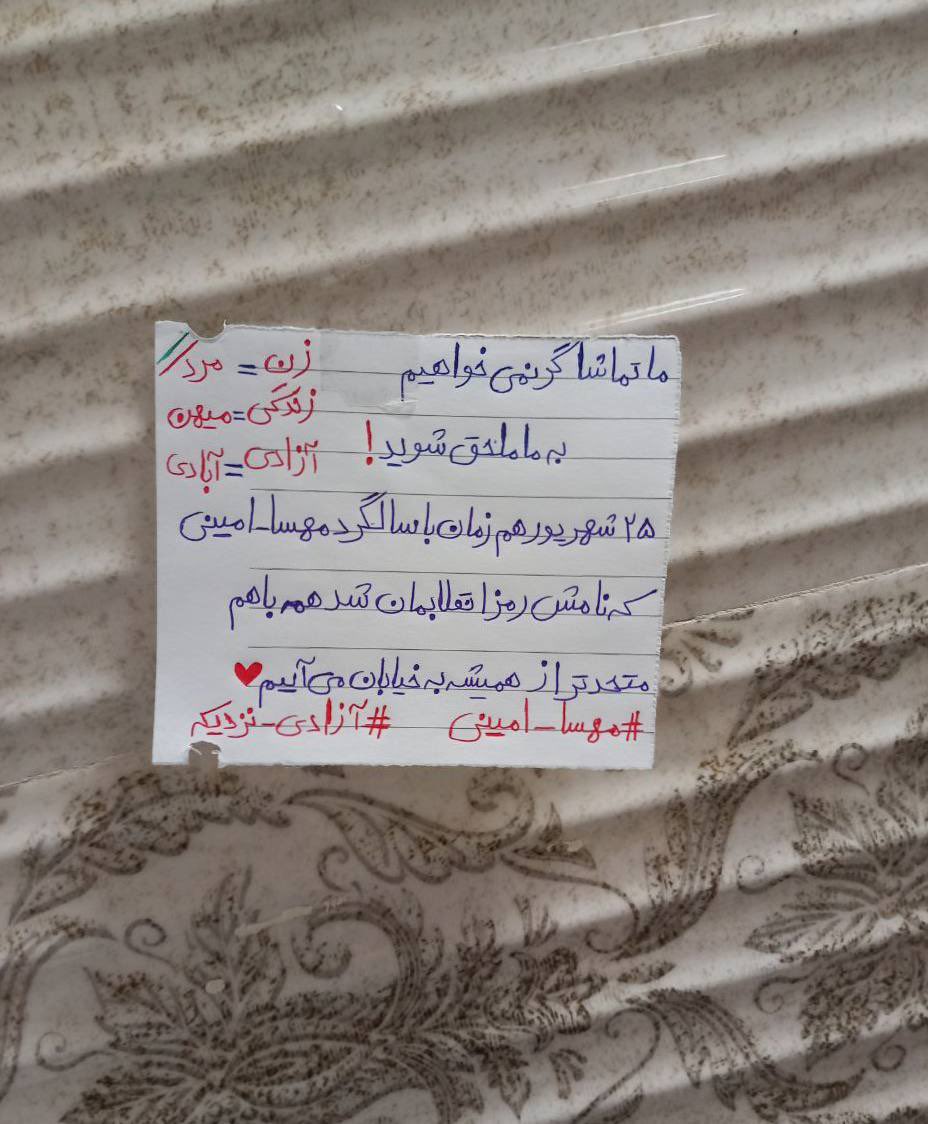 ما تماشاگر نمی خواهیم
به ما ملحق شوید!
زن = مرد
زندگی = میهن
آزادی = آبادی
۲۵ شهریور هم زمان با سالگرد مهسا_امینی
که نامش رمز انقلابمان شد همه باهم
متحدتر از همیشه به خیابان می آییم ♥
#مهسا_امینی #آزادی_نزدیکه